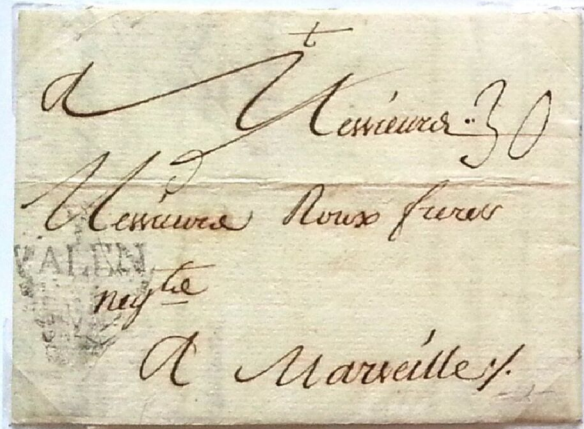 +
A Messieurs 30
Messieurs Roux freres
VALEN
neg^ts
A Marseille /.